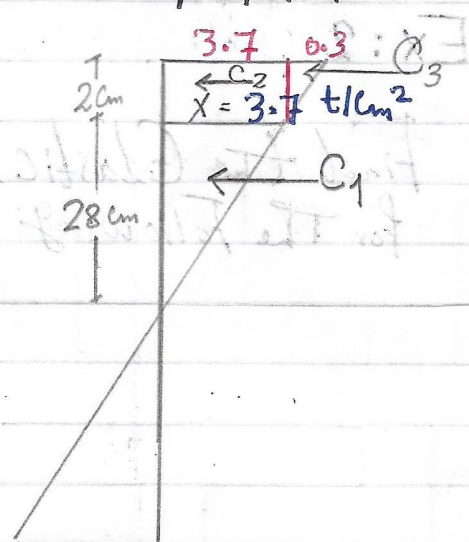 3.7 0.3
C3
2cm
C2
X = 3.7 t/cm²
C1
28cm